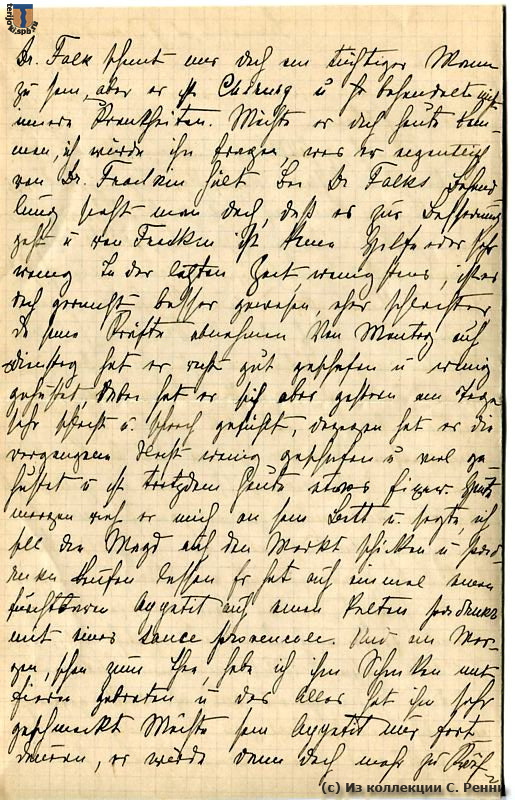 terijoki.spb.ru
Dr. Falk scheint mir doch ein tüchtiger Mann
zu sein, aber er ist Chirurg u Ihr behandelte
innere Krankheiten. Möchte er doch heute kom-
men, ich würde ihn fragen, was er eigentlich
von Dr. Fraenkin hält Bei Dr Falks Behand
lung sieht man doch, daß es zur Besserung
geht u von Fraenkin ist keine Hilfe oder sehr
wenig In der letzten Zeit, wenigstens, ist er
doch garnicht besser gewesen, eher schlechter
da seine Kräfte abnehmen Von Montag auf
Dienstag hat er recht gut geschlafen u wenig
gehustet, dabei hat er sich aber gestern am Tage
sehr schlecht u. schwach gefühlt, dagegen hat er die
vergangene Nacht wenig geschlafen u viel ge
hustet u ist trotzdem heute etwas fixer. Heute
morgen rief er mich an sein Bett u. sagte ich
soll die Magd auf den Markt schicken u
kaufen lassen Er hat auf einmal einen
furchtbaren Appetit auf einen kalten
mit einer sauce provencale. Und am Mor-
gen, schon zum Thee, habe ich ihm Schinken mit
Eiern gebraten u das Alles hat ihm sehr
geschmeckt Möchte sein Appetit nur fort
dauern, er würde dann doch mehr zu Kräf-
(c) Из коллекции С. Ренни